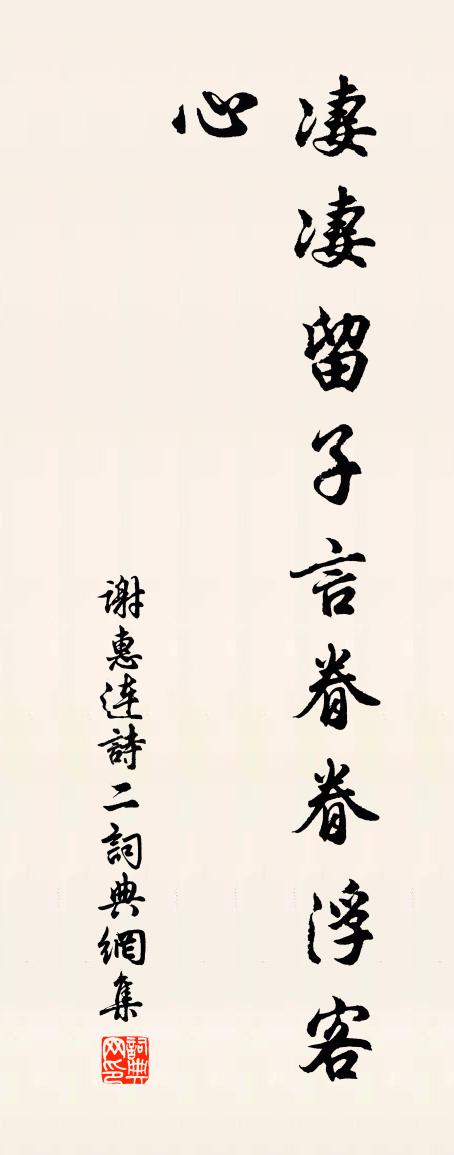 凄凄留子言眷眷浮客
心
谢惠连詩二詞典網集
詞典网印